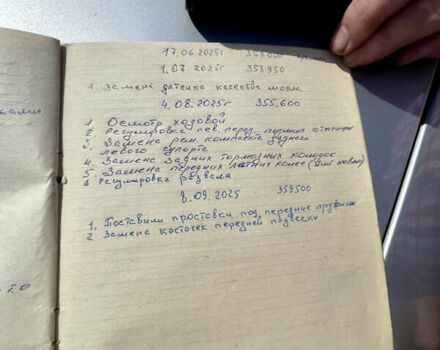 17.06.2025г 353.000
1.07 2025г 353950
1 Замена датчика качества масла
4.08.2025г 355.600
1 Осмотр ходовой
2. Регулировка лев. перед.
3. Замена рем. комплекта заднего
левого супорта
4. Замена задних тормозных колодок
5. Замена передних летних колес (
6 регулировка развала
8.09.2025 359500
1. Поставили проставки под передние пружины
2 Замена косточек передней подвески
Т.О